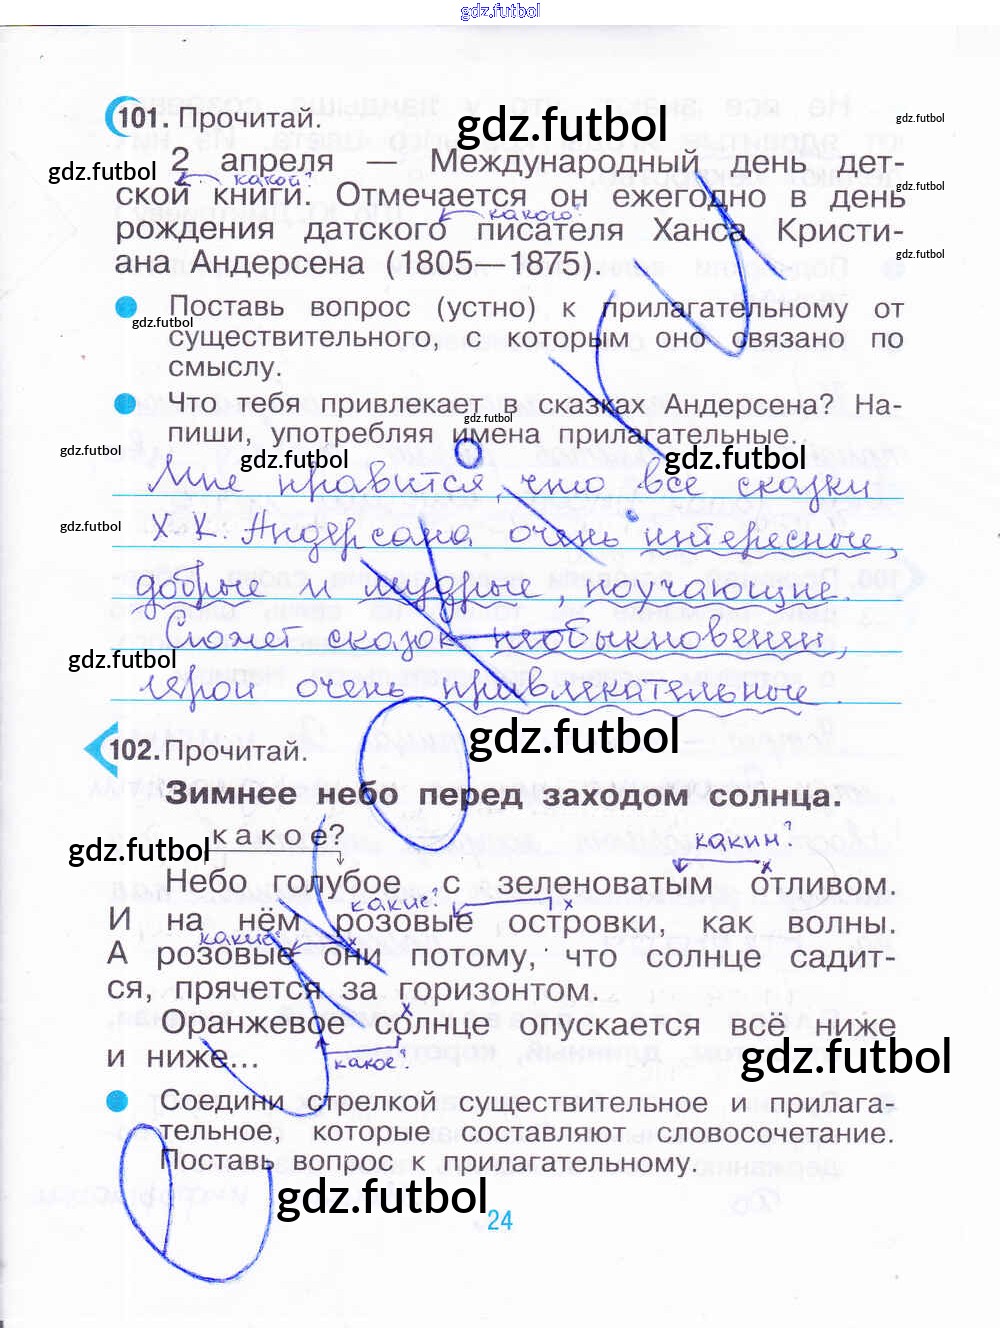 gdz.futbol
101. Прочитай.
gdz.futbol
gdz.futbol
2 апреля — Международный день дет-
gdz.futbol
какой?
ской книги. Отмечается он ежегодно в день
gdz.futbol
какого?
рождения датского писателя Ханса Кристи-
gdz.futbol
ана Андерсена (1805—1875).
Поставь вопрос (устно) к прилагательному от
gdz.futbol
существительного, с которым оно связано по
смыслу.
Что тебя привлекает в сказках Андерсена? На-
gdz.futbol
пиши, употребляя имена прилагательные.
gdz.futbol
gdz.futbol
gdz.futbol
Мне нравится, что все сказки
gdz.futbol
Х.К. Андерсена очень интересные,
добрые и мудрые, поучающие.
Сюжет сказок необыкновенен,
gdz.futbol
герои очень привлекательные.
gdz.futbol
102. Прочитай.
Зимнее небо перед заходом солнца.
какое?
каким?
gdz.futbol
Небо голубое с зеленоватым отливом.
какие?
И на нём розовые островки, как волны.
какие?
А розовые они потому, что солнце садит-
ся, прячется за горизонтом.
Оранжевое солнце опускается всё ниже
и ниже...
какое?
gdz.futbol
Соедини стрелкой существительное и прилага-
тельное, которые составляют словосочетание.
Поставь вопрос к прилагательному.
gdz.futbol
24